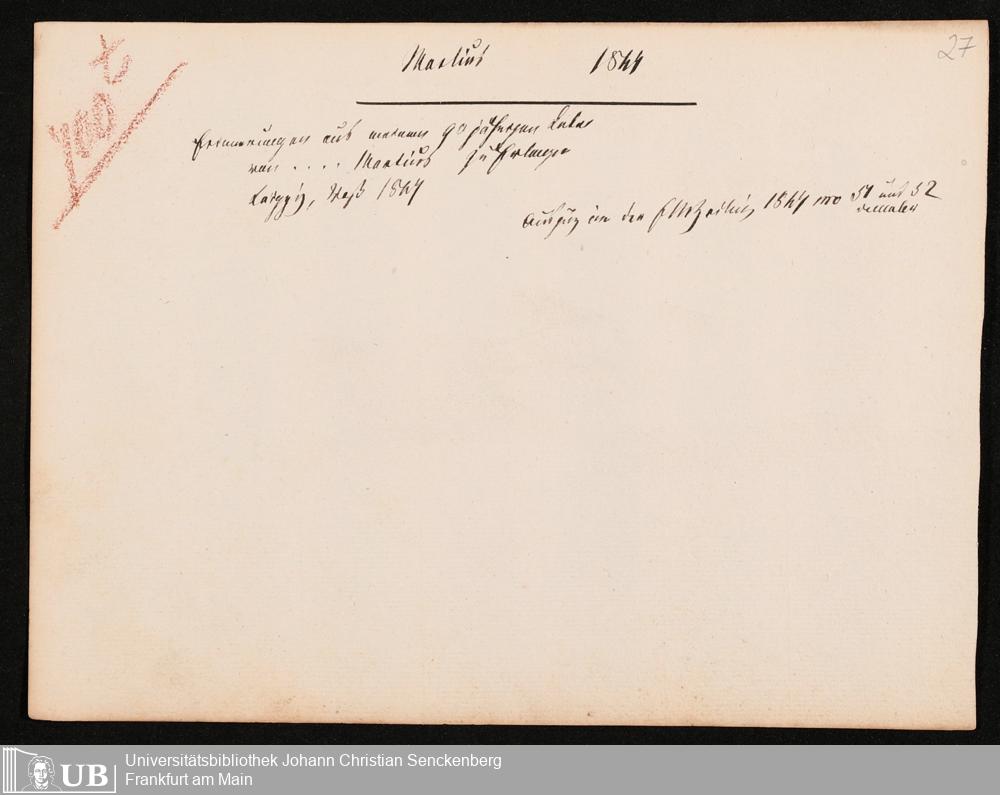 27
Martius 1847
Erinnerungen aus meinem 90 jährigen Leben
von .... Martius zu Erlangen
Leipzig, Voß 1847
Auszug in der 1847 no 51 und 52
Universitätsbibliothek Johann Christian Senckenberg
Frankfurt am Main
UB